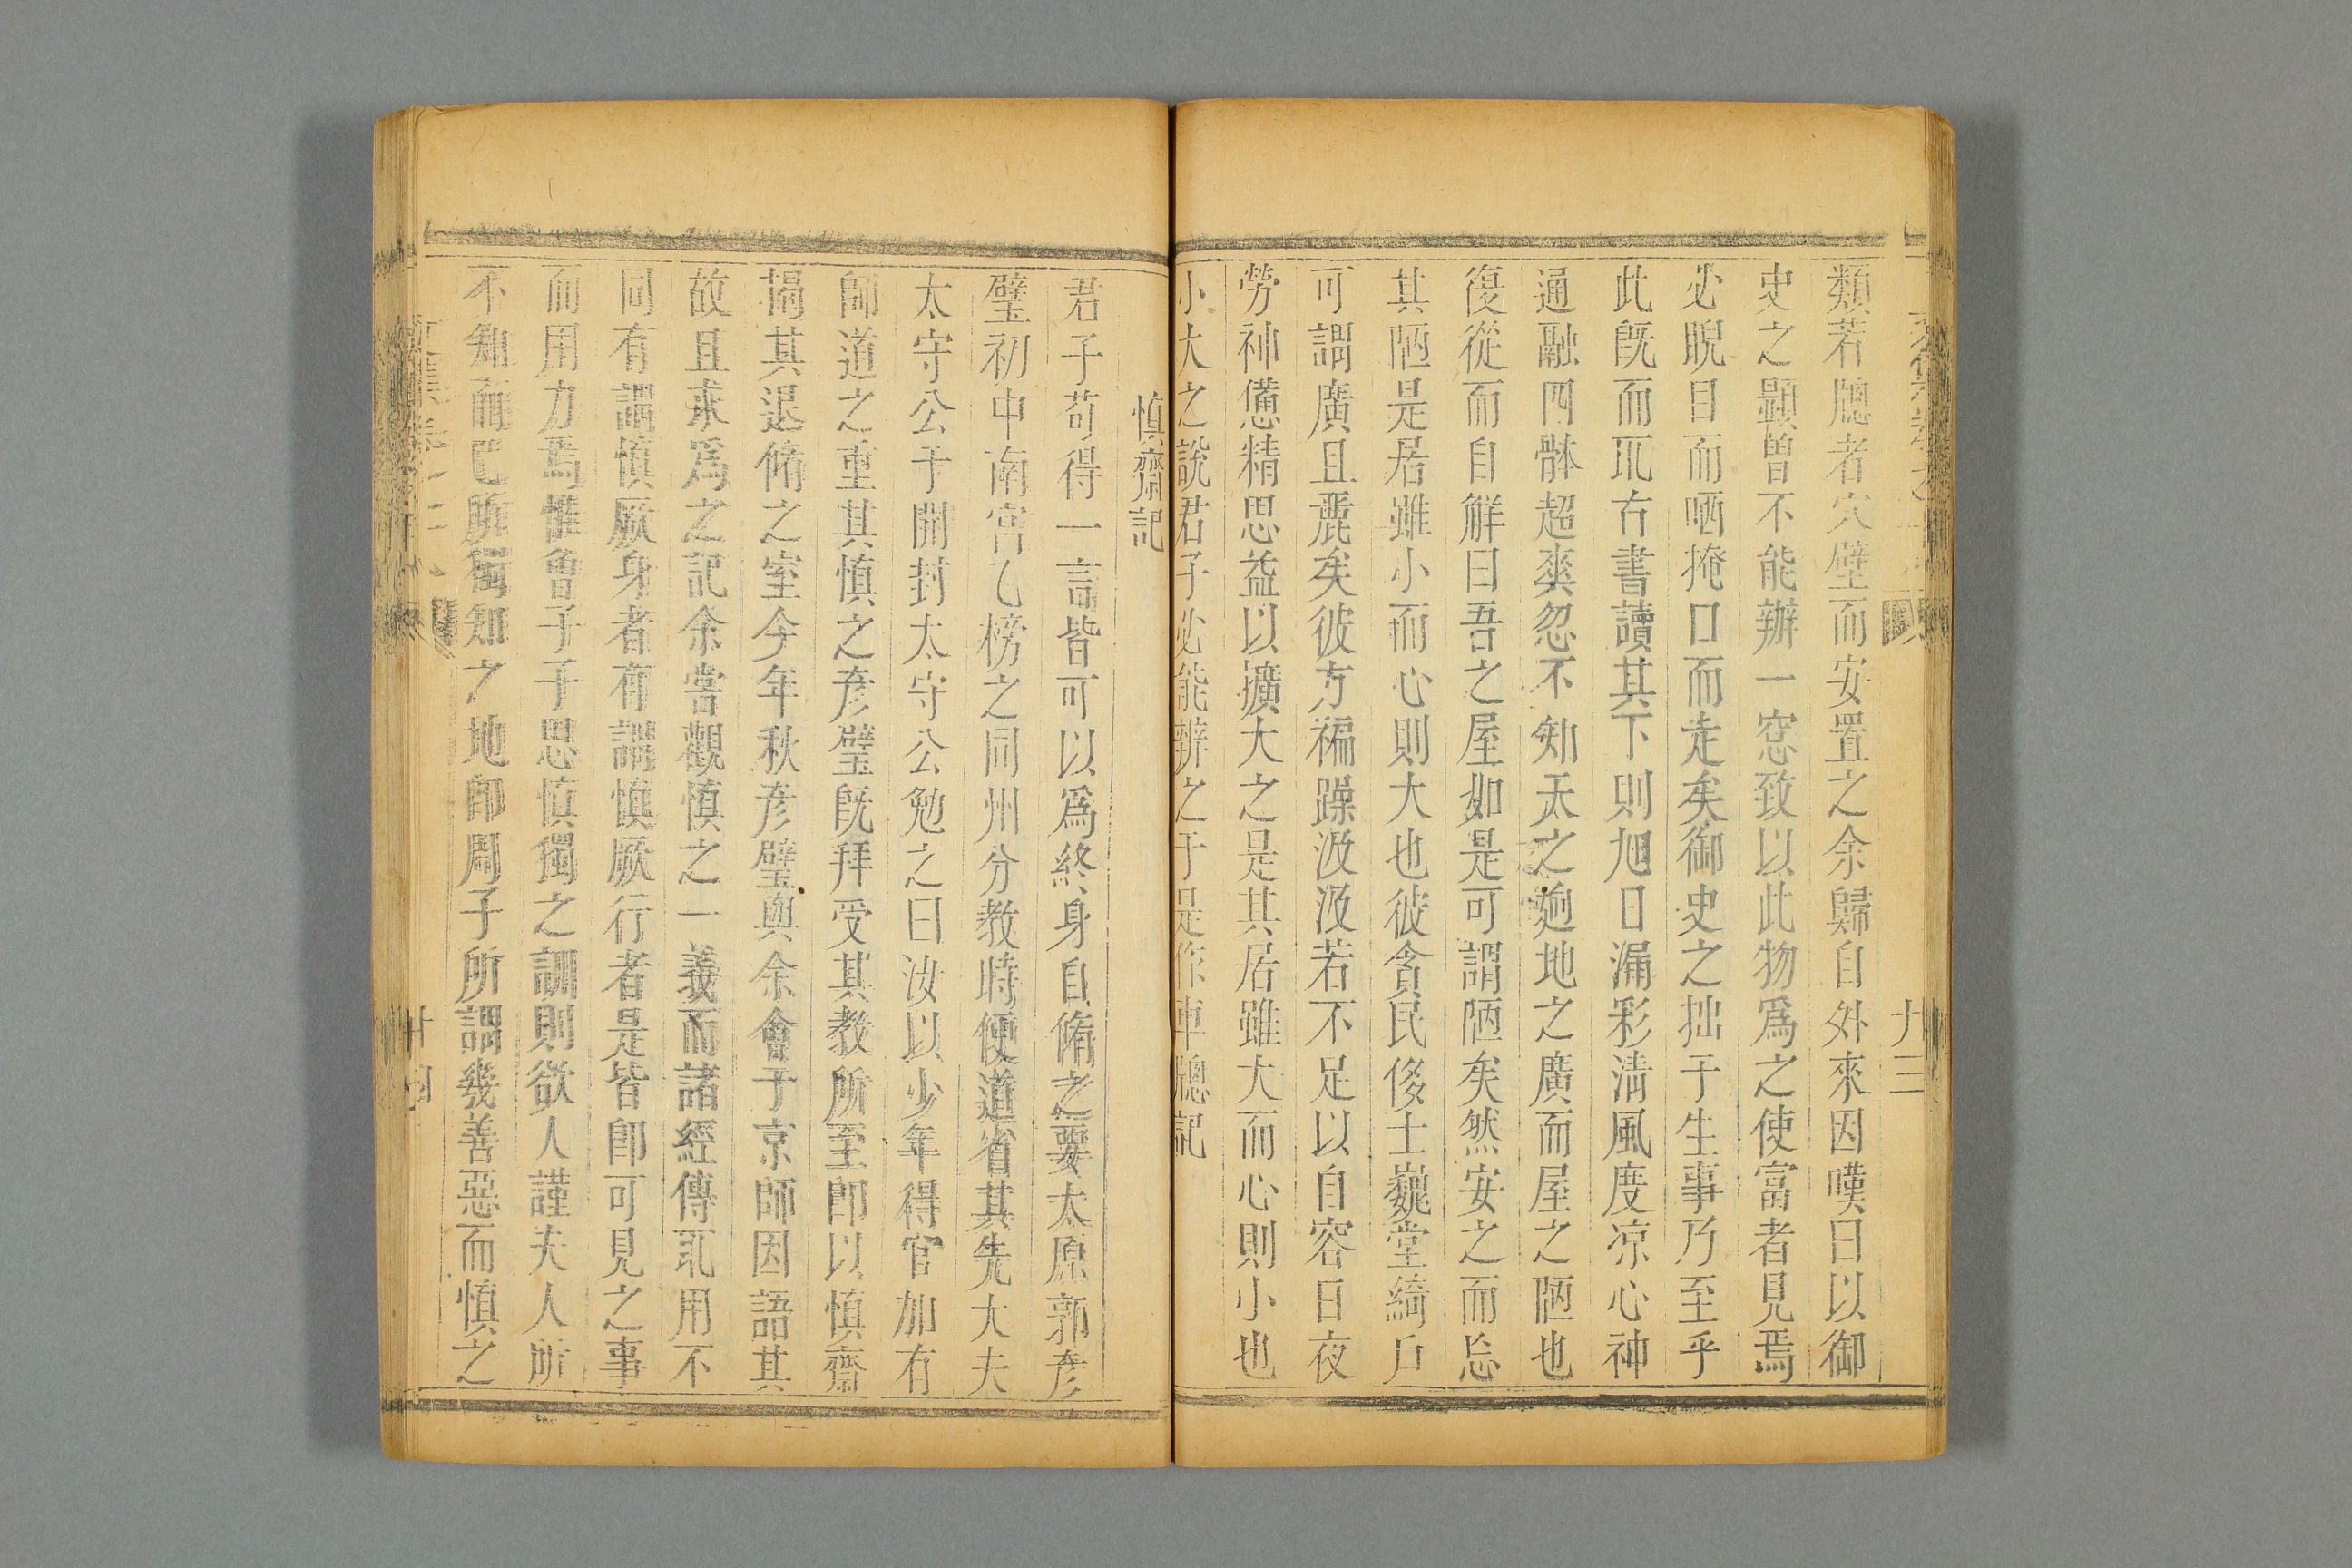 類若牕者穴壁而安置之余歸自外來因嘆曰以御
史之顯曾不能辦一窓致以此物爲之使富者見焉
必睨目而哂掩口而走矣御史之拙于生事乃至乎
此既而取右書讀其下則旭日漏彩淸風度凉心神
通融四骵超爽忽不知天之逈地之廣而屋之陋也
復從而自觧曰吾之屋如是可謂陋矣然安之而忘
其陋是居雖小而心則大也彼貪民侈士巍堂綺戶
可謂廣且麗矣彼方褊躁汲汲若不足以自容日夜
勞神憊精思益以擴大之是其居雖大而心則小也
小大之說君子必能辨之于是作車牕記
廿三
慎齋記
君子苟得一言皆可以爲終身自脩之要太原郭彥
璧初中南宮乙榜之同州分教時便道省其先大夫
太守公于開封太守公勉之曰汝以少年得官加有
師道之重其慎之彥璧既拜受其教所至卽以慎齋
揭其退脩之室今年秋彥璧與余會于京師因語其
故且求爲之記余嘗觀慎之一義而諸經傳取用不
同有謂慎厥身者有謂慎厥行者是皆卽可見之事
而用力焉惟曾子子思慎獨之訓則欲人謹夫人所
不知而己所獨知之地卽周子所謂幾善惡而慎之
廿四